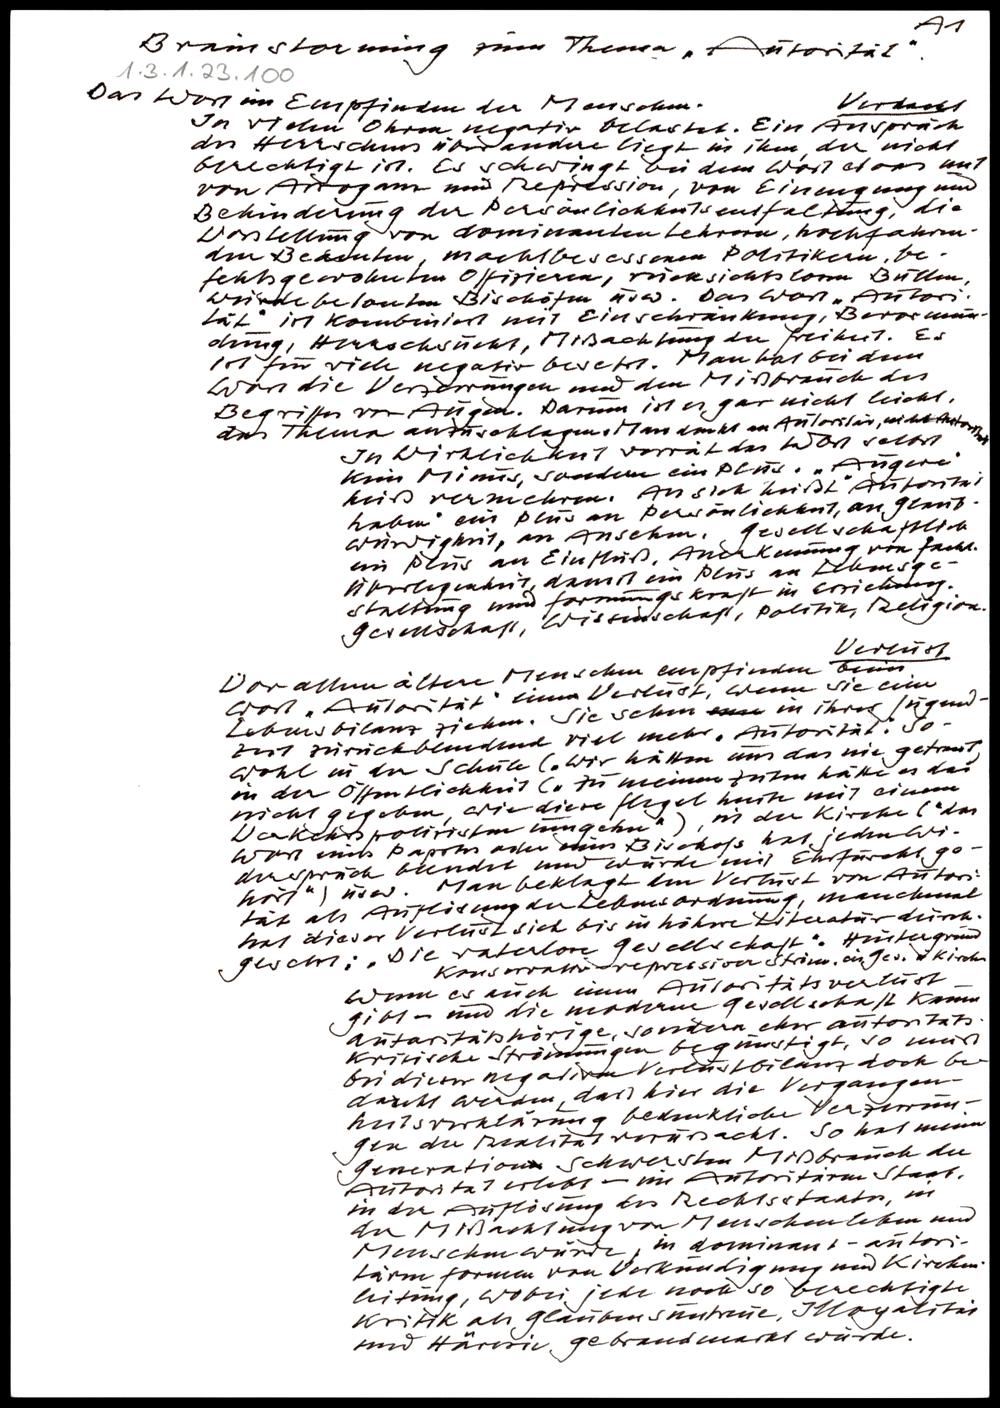 A1
Brainstorming zum Thema „Autorität".
1.3.1.23.100
Das Wort im Empfinden der Menschen.
Verdacht
In vielen Ohren negativ belastet. Ein Anspruch
des Herrschens über andere liegt in ihm, der nicht
berechtigt ist. Es schwingt bei dem Wort etwas mit
von Arroganz und Repression, von Einengung und
Behinderung der Persönlichkeitsentfaltung, die
Vorstellung von dominanten Lehrern, hochfahren-
den Beamten, machtbesessenen Politikern, be-
fehlsgewohnten Offizieren, rücksichtslosen Bullen,
würdebetonten Bischöfen usw. Das Wort „Autori-
tät" ist kombiniert mit Einschränkung, Bevormun-
dung, Herrschsucht, Mißachtung der Freiheit. Es
ist für viele negativ besetzt. Man hat bei dem
Wort die Verzerrungen und den Mißbrauch des
Begriffes vor Augen. Darum ist es gar nicht leicht,
das Thema anzuschlagen. Man denkt an Autoritär, nicht Autorität
In Wirklichkeit verrät das Wort selbst
kein Minus, sondern ein Plus. „Augere"
heißt vermehren. An sich heißt „Autorität
haben" ein Plus an Persönlichkeit, an Glaub-
würdigkeit, an Ansehen. Gesellschaftlich
ein Plus an Einfluß, Anerkennung von fachl.
Überlegenheit, damit ein Plus an Lebensge-
staltung und Formungskraft in Erziehung,
Gesellschaft, Wissenschaft, Politik, Religion.
Verlust
Vor allem ältere Menschen empfinden beim
Wort „Autorität" einen Verlust, wenn sie eine
Lebensbilanz ziehen. Sie sehen in ihrer Jugend-
zeit zurückblendend viel mehr „Autorität". So-
wohl in der Schule („wir hätten uns das nie getraut,
in der Öffentlichkeit („zu meinen Zeiten hätte es das
nicht gegeben, wie diese Flegel heute mit einem
Verkehrspolizisten umgehn"), in der Kirche („das
Wort eines Papstes oder eines Bischofs hat jeden Wi-
derspruch beendet und wurde mit Ehrfurcht ge-
hört") usw. Man beklagt den Verlust von Autori-
tät als Auflösung der Lebensordnung, manchmal
hat dieser Verlust sich bis in höhere Literatur durch-
gesetzt: „Die vaterlose Gesellschaft". Hintergrund
konservativ-repressiver Ström. in Ges. u Kirche
Wenn es auch einen Autoritätsverlust
gibt – und die moderne Gesellschaft kaum
autoritätshörige, sondern eher autoritäts-
kritische Strömungen begünstigt, so muß
bei dieser negativen Verlustbilanz doch be-
dacht werden, daß hier die Vergangen-
heitsverklärung bedenkliche Verzerrun-
gen der Realität verursacht. So hat meine
Generation schwersten Mißbrauch der
Autorität erlebt – im Autoritären Staat,
in der Auflösung des Rechtsstaates, in
der Mißachtung von Menschenleben und
Menschenwürde, in dominant-autori-
tären Formen von Verkündigung und Kirchen-
leitung, wobei jede noch so berechtigte
Kritik als Glaubensuntreue, Illoyalität
und Häresie gebrandmarkt wurde.